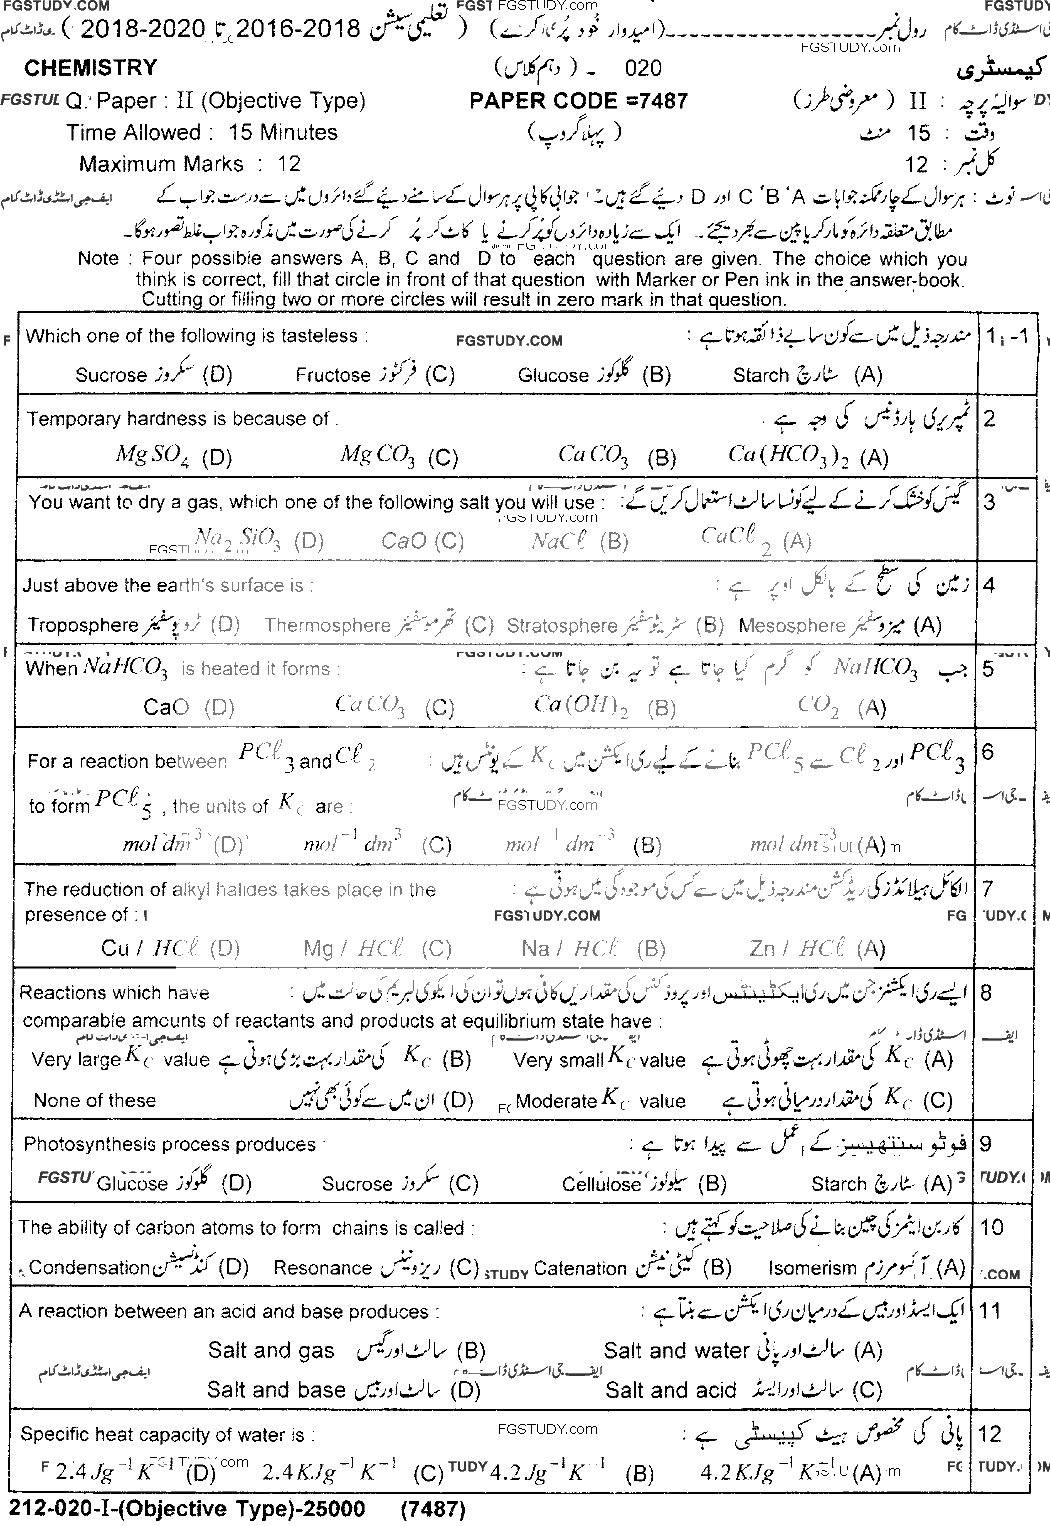 FGSTUDY.COM FGST FGSTUDY.com FGSTUDY.COM
رول نمبر ------------------------ (امیدوار خود پُر کرے) تعلیمی سیشن 2016-2018 تا 2018-2020 )
FGSTUDY.com
CHEMISTRY 020 - (دہم کلاس) کیمسٹری
Q. Paper : II (Objective Type) PAPER CODE =7487 سوالیہ پرچہ : II (معروضی طرز)
Time Allowed : 15 Minutes (پہلا گروپ) وقت : 15 منٹ
Maximum Marks : 12 کل نمبر : 12
نوٹ : ہر سوال کے چار ممکنہ جوابات A ' B ' C اور D دیئے گئے ہیں۔ جوابی کاپی پر ہر سوال کے سامنے دیئے گئے دائروں میں سے درست جواب کے
مطابق متعلقہ دائرہ کو مارکر یا پین سے بھر دیجئے۔ ایک سے زیادہ دائروں کو پُر کرنے یا کاٹ کر پُر کرنے کی صورت میں مذکورہ جواب غلط تصور ہوگا۔
Note : Four possible answers A, B, C and D to each question are given. The choice which you
think is correct, fill that circle in front of that question with Marker or Pen ink in the answer-book.
Cutting or filling two or more circles will result in zero mark in that question.
Which one of the following is tasteless : FGSTUDY.COM مندرجہ ذیل میں سے کون سا بے ذائقہ ہوتا ہے : 1-1
Sucrose سکروز (D) Fructose فرکٹوز (C) Glucose گلوکوز (B) Starch سٹارچ (A)
Temporary hardness is because of : ٹمپریری ہارڈنیس کی وجہ ہے : 2
MgSO₄ (D) MgCO₃ (C) CaCO₃ (B) Ca(HCO₃)₂ (A)
You want to dry a gas, which one of the following salt you will use : گیس کو خشک کرنے کے لیے کونسا سالٹ استعمال کریں گے : 3
FGSTUDY.com
Na₂SiO₃ (D) CaO (C) NaCl (B) CaCl₂ (A)
Just above the earth's surface is : زمین کی سطح کے بالکل اوپر ہے : 4
Troposphere ٹروپوسفیئر (D) Thermosphere تھرموسفیئر (C) Stratosphere سٹریٹوسفیئر (B) Mesosphere میزوسفیئر (A)
When NaHCO₃ is heated it forms : جب NaHCO₃ کو گرم کیا جاتا ہے تو یہ بن جاتا ہے : 5
CaO (D) CaCO₃ (C) Ca(OH)₂ (B) CO₂ (A)
For a reaction between PCl₃ and Cl₂ PCl₃ اور Cl₂ سے PCl₅ بنانے کے لیے ری ایکشن میں K_C کے یونٹس ہیں : 6
to form PCl₅ , the units of K_C are : FGSTUDY.com
mol dm⁻³ (D) mol⁻¹ dm³ (C) mol⁻¹ dm⁻³ (B) mol dm⁻³ (A)
The reduction of alkyl halides takes place in the الکائل ہیلائڈز کی ریڈکشن مندرجہ ذیل میں سے کس کی موجودگی میں ہوتی ہے : 7
presence of : FGSTUDY.COM
Cu / HCl (D) Mg / HCl (C) Na / HCl (B) Zn / HCl (A)
Reactions which have ایسے ری ایکشنز جن میں ری ایکٹینٹس اور پروڈکٹس کی مقداریں کافی ہوں تو ان کی ایکوی لبریم کی حالت میں : 8
comparable amounts of reactants and products at equilibrium state have :
Very large K_C value K_C کی مقدار بہت بڑی ہوتی ہے (B) Very small K_C value K_C کی مقدار بہت چھوٹی ہوتی ہے (A)
None of these ان میں سے کوئی بھی نہیں (D) Moderate K_C value K_C کی مقدار درمیانی ہوتی ہے (C)
Photosynthesis process produces : فوٹو سنتھیسز کے عمل سے پیدا ہوتا ہے : 9
Glucose گلوکوز (D) Sucrose سکروز (C) Cellulose سیلولوز (B) Starch سٹارچ (A)
The ability of carbon atoms to form chains is called : کاربن ایٹمز کی چین بنانے کی صلاحیت کو کہتے ہیں : 10
Condensation کنڈنسیشن (D) Resonance ریزونینس (C) Catenation کیٹی نیشن (B) Isomerism آئسومرزم (A)
A reaction between an acid and base produces : ایک ایسڈ اور بیس کے درمیان ری ایکشن سے بنتا ہے : 11
Salt and gas سالٹ اور گیس (B) Salt and water سالٹ اور پانی (A)
Salt and base سالٹ اور بیس (D) Salt and acid سالٹ اور ایسڈ (C)
Specific heat capacity of water is : FGSTUDY.com پانی کی مخصوص ہیٹ کپیسٹی ہے : 12
2.4 Jg⁻¹K⁻¹ (D) 2.4KJg⁻¹K⁻¹ (C) 4.2 Jg⁻¹K⁻¹ (B) 4.2KJg⁻¹K⁻¹ (A)
212-020-I-(Objective Type)-25000 (7487)